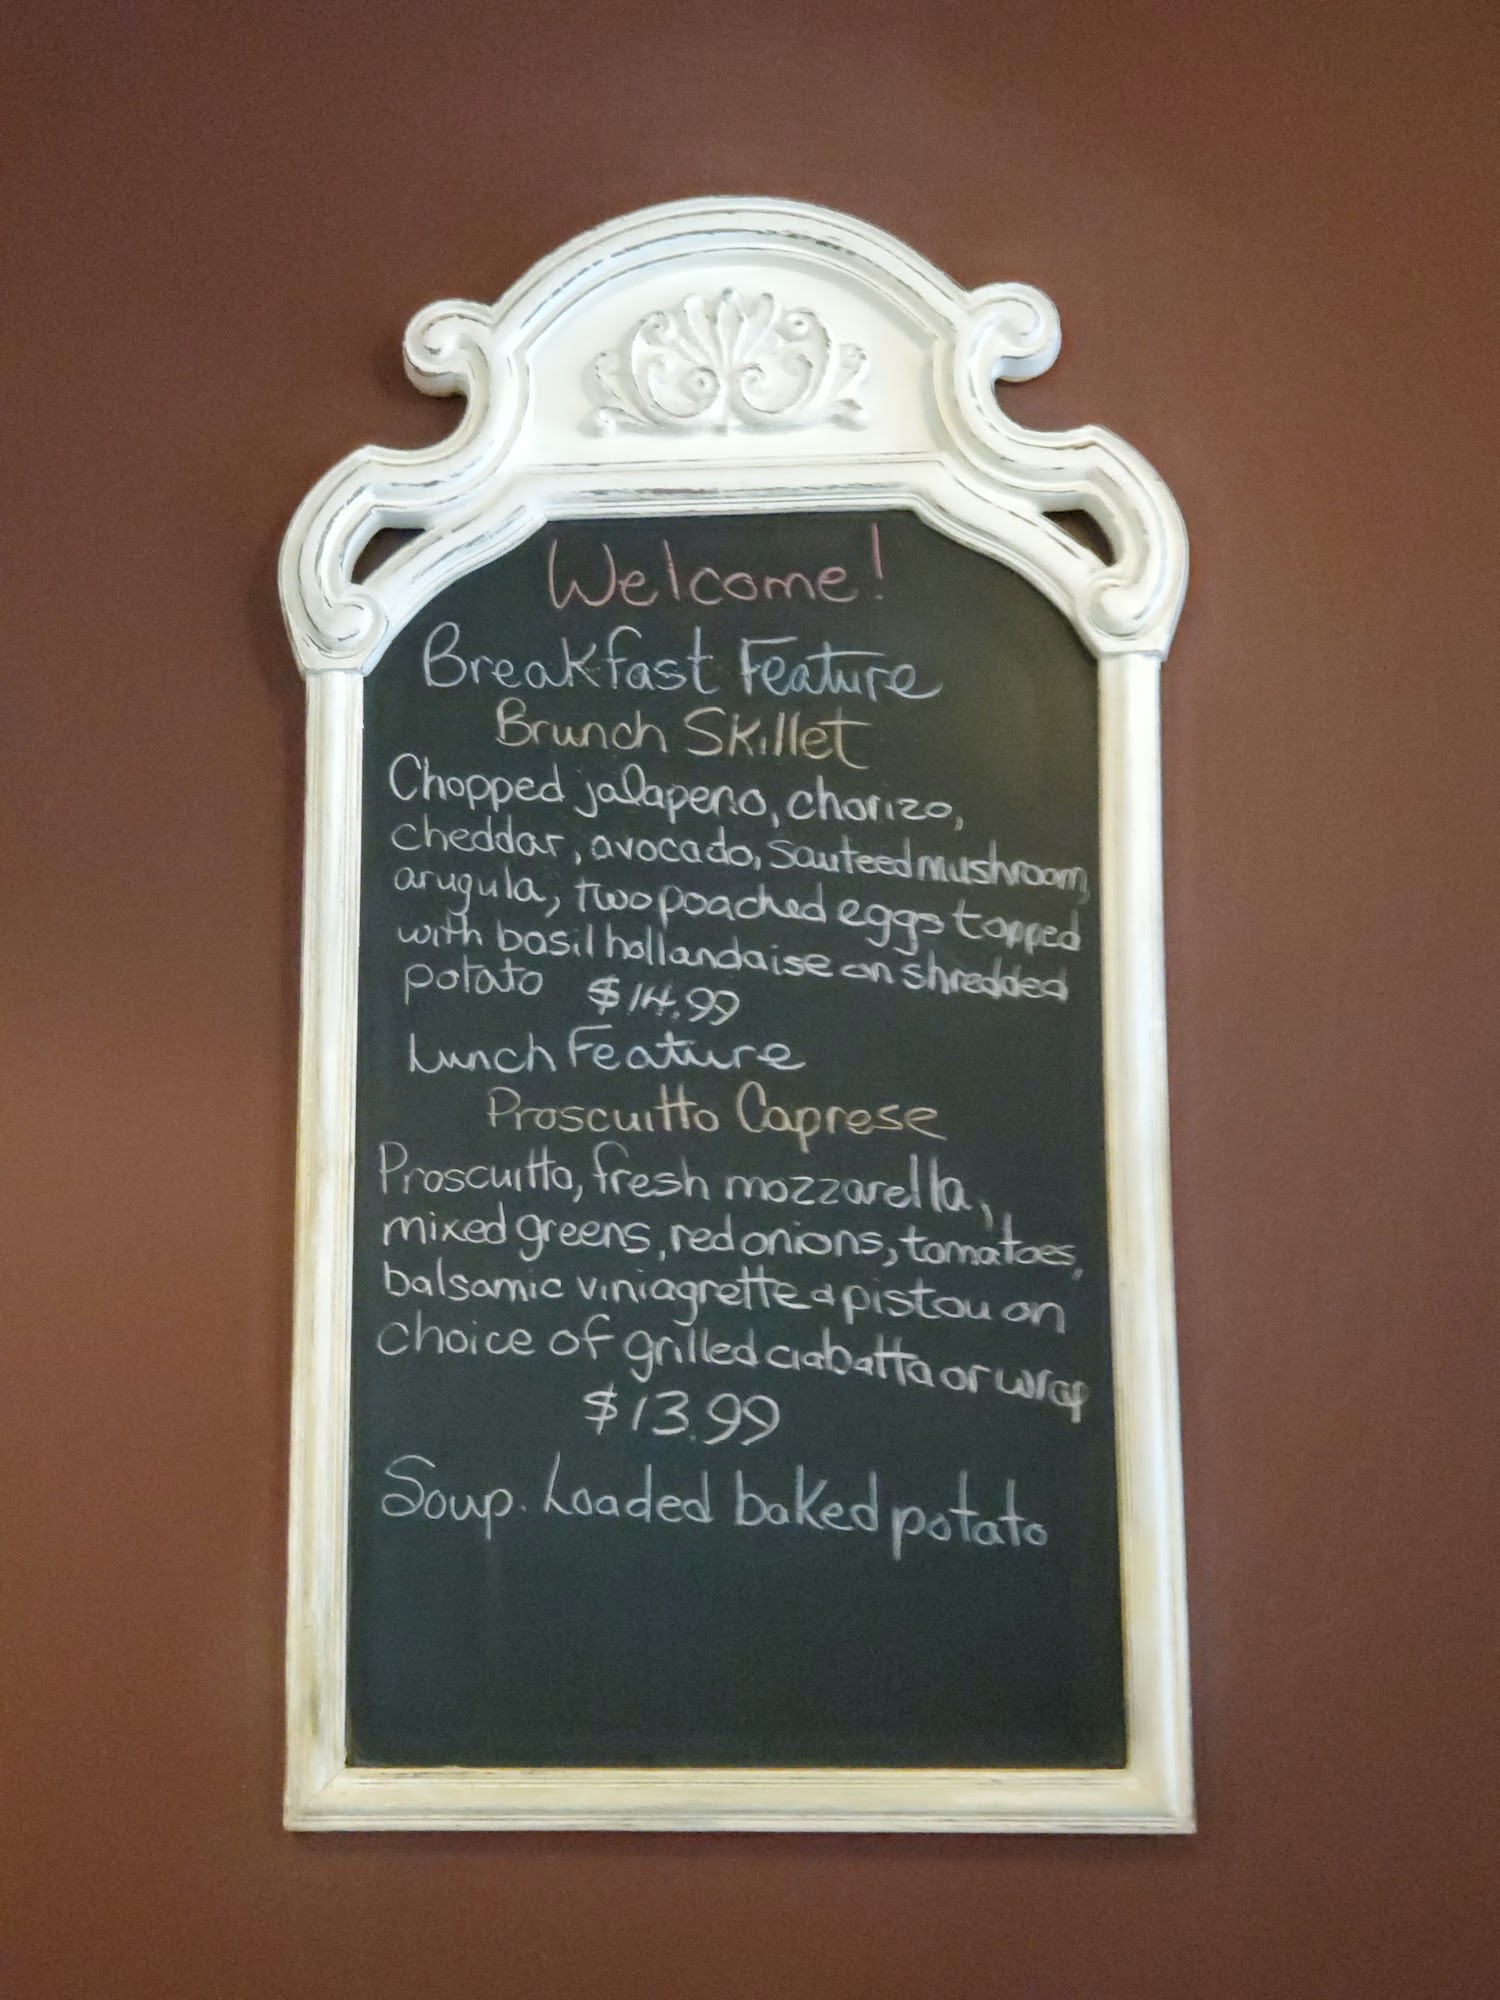 Welcome!
Breakfast Feature
Brunch Skillet
Chopped jalapeno, chorizo,
cheddar, avocado, sauteed mushroom,
arugula, two poached eggs topped
with basil hollandaise on shredded
potato $14.99
Lunch Feature
Proscuitto Caprese
Proscuitto, fresh mozzarella,
mixed greens, red onions, tomatoes,
balsamic viniagrette & pistou on
choice of grilled ciabatta or wrap
$13.99
Soup. Loaded baked potato